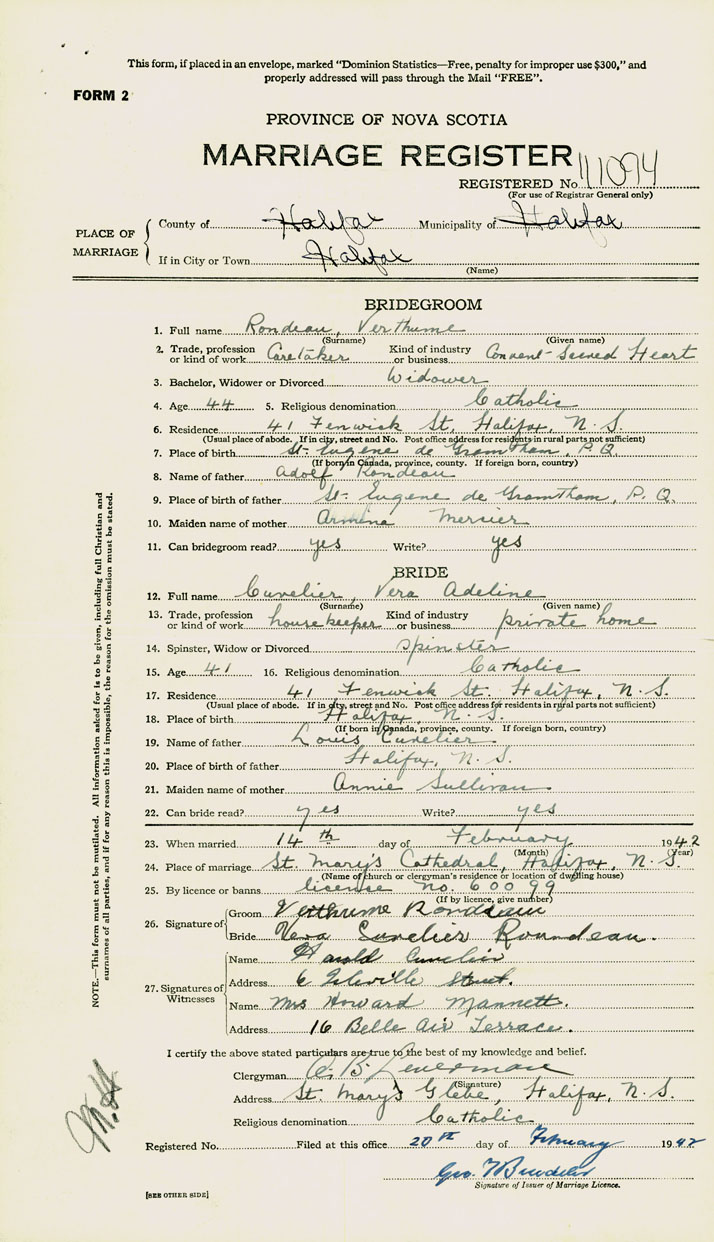 This form, if placed in an envelope, marked "Dominion Statistics—Free, penalty for improper use $300," and
properly addressed will pass through the Mail "FREE".
FORM 2
PROVINCE OF NOVA SCOTIA
MARRIAGE REGISTER
REGISTERED No. 11094
(For use of Registrar General only)
PLACE OF MARRIAGE
County of Halifax Municipality of Halifax
If in City or Town Halifax
(Name)
BRIDEGROOM
1. Full name Rondeau, Verthume
(Surname) (Given name)
2. Trade, profession or kind of work Caretaker Kind of industry or business Convent-Sacred Heart
3. Bachelor, Widower or Divorced Widower
4. Age 44 5. Religious denomination Catholic
6. Residence 41 Fenwick St, Halifax, N.S.
(Usual place of abode. If in city, street and No. Post office address for residents in rural parts not sufficient)
7. Place of birth St. Eugene de Gramtham, P.Q.
(If born in Canada, province, county. If foreign born, country)
8. Name of father Adolf Rondeau
9. Place of birth of father St. Eugene de Gramtham, P.Q.
10. Maiden name of mother Armina Mercier
11. Can bridegroom read? yes Write? yes
BRIDE
12. Full name Cuvelier, Vera Adeline
(Surname) (Given name)
13. Trade, profession or kind of work housekeeper Kind of industry or business private home
14. Spinster, Widow or Divorced spinster
15. Age 41 16. Religious denomination Catholic
17. Residence 41 Fenwick St. Halifax, N.S.
(Usual place of abode. If in city, street and No. Post office address for residents in rural parts not sufficient)
18. Place of birth Halifax, N.S.
(If born in Canada, province, county. If foreign born, country)
19. Name of father Louis Cuvelier
20. Place of birth of father Halifax, N.S.
21. Maiden name of mother Annie Sullivan
22. Can bride read? yes Write? yes
23. When married 14th day of February 1942
(Month) (Year)
24. Place of marriage St. Mary's Cathedral, Halifax, N.S.
(Name of church or clergyman's residence or location of dwelling house)
25. By licence or banns license no. 60099
(If by licence, give number)
26. Signature of
Groom Verthume Rondeau
Bride Vera Cuvelier Roundeau.
27. Signatures of Witnesses
Name Harold Cuvelier
Address 6 Street.
Name Mrs Howard Mannett.
Address 16 Belle Air Terrace.
I certify the above stated particulars are true to the best of my knowledge and belief.
Clergyman
(Signature)
Address St. Mary's Glebe, Halifax, N.S.
Religious denomination Catholic
Registered No. Filed at this office 20th day of February 1942
Geo.
Signature of Issuer of Marriage Licence.
[SEE OTHER SIDE]
NOTE.—This form must not be mutilated. All information asked for is to be given, including full Christian and
surnames of all parties, and if for any reason this is impossible, the reason for the omission must be stated.